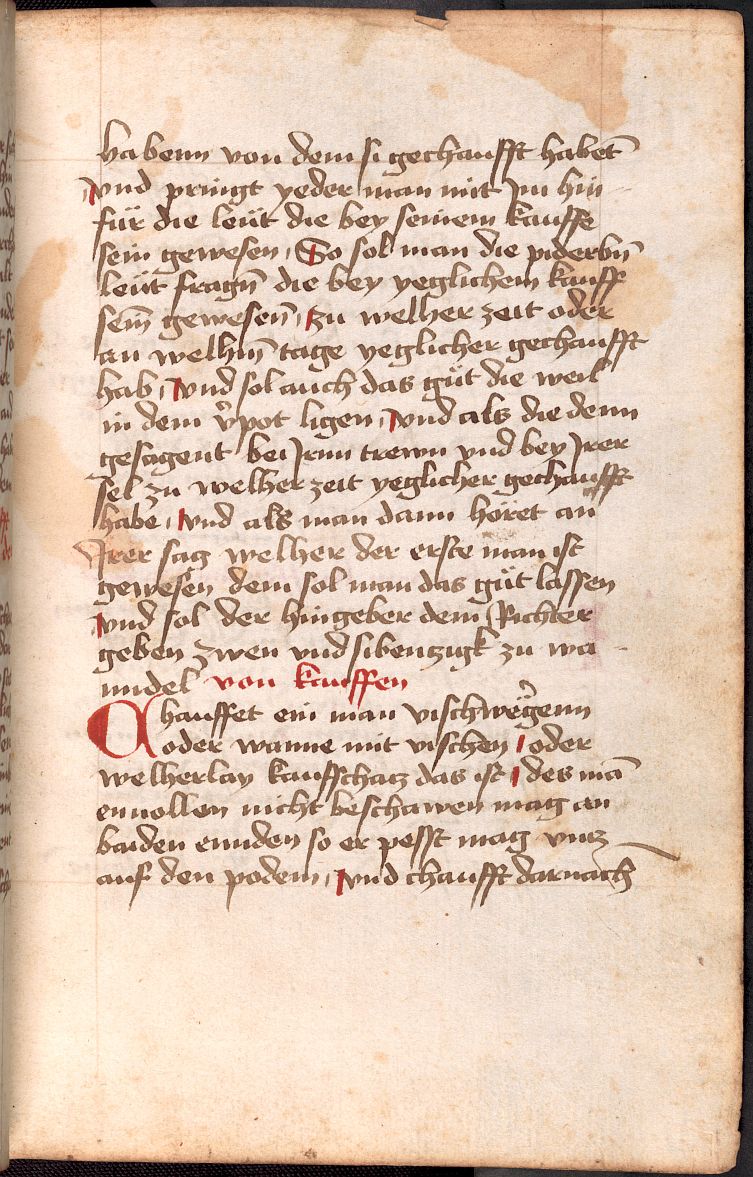 habenn von dem si gechaufft habet̄
vnd pringt yeder man mit Im hin
für die leüt die bey seinem kauffe
sein gewesen, So sol man die piderbn̄
leüt fragn̄ die bey yeglichem kauff
sein̄ gewesen̄, zu welher zeit oder
an welhm̄ tage yeglicher gechaufft
hab, vnd sol auch das güt die weil
in dem v̓pot ligen, vnd als die denn
gesagent bei Irnn trewn vnd bey Irer
sel zu welher zeit yeglicher gechaufft
habe, vnd als man dann höret an
Irer sag welher der erste man ist
gewesen dem sol man das güt lassen
vnd sol der hingeber dem Richter
geben zwen vnd sibentzigk zu wa
nndel von kauffen
Chauffet ein man vischweg̓enn
oder wanne mit vischen, oder
welherlay kauffschatz das ist, des mā
enuollen nicht beschawen mag an
baiden ennden so er pesst mag vntz
auf den podem, vnd chaufft darnach